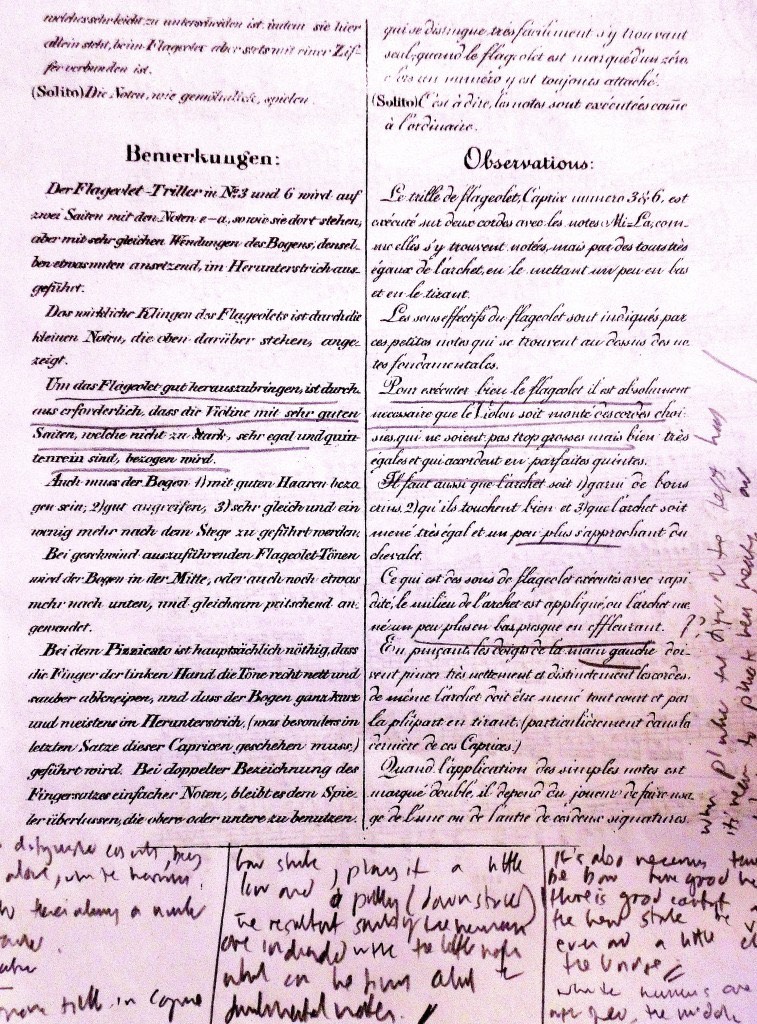 welches sehr leicht zu unterscheiden ist, indem sie hier
allein steht, beim Flageolet aber stets mit einer Zif-
fer verbunden ist.
(Solito) Die Noten, wie gewöhnlich, spielen.
Bemerkungen:
Der Flageolet-Triller in No. 3 und 6 wird auf
zwei Saiten mit den Noten e-a, so wie sie dort stehen,
aber mit sehr gleichen Wendungen des Bogens, densel-
ben etwas unten ansetzend, im Herunterstrich aus-
geführt.
Das wirkliche Klingen des Flageolets ist durch die
kleinen Noten, die oben darüber stehen, ange-
zeigt.
Um das Flageolet gut herauszubringen, ist durch-
aus erforderlich, dass die Violine mit sehr guten
Saiten, welche nicht zu stark, sehr egal und quin-
tenrein sind, bezogen wird.
Auch muss der Bogen 1) mit guten Haaren bezo-
gen sein; 2) gut angreifen, 3) sehr gleich und ein
wenig mehr nach dem Stege zu geführt werden.
Bei geschwind auszuführenden Flageolet-Tönen
wird der Bogen in der Mitte, oder auch noch etwas
mehr nach unten, und gleichsam peitschend an-
gewendet.
Bei dem Pizzicato ist hauptsächlich nöthig, dass
die Finger der linken Hand die Töne recht nett und
sauber abkneipen, und dass der Bogen ganz kurz
und meistens im Herunterstrich, (was besonders im
letzten Satze dieser Capricen, geschehen muss,)
geführt wird. Bei doppelter Bezeichnung des
Fingersatzes einfacher Noten, bleibt es dem Spie-
ler überlassen, die obere oder untere zu benutzen.
qui se distingue très facilement s'y trouvant
seul, quand le flageolet est marqué d'un zéro,
alors un numéro y est toujours attaché.
(Solito) C'est à dire, les notes sont exécutées come
à l'ordinaire.
Observations:
Le trille de flageolet, Caprix numero 3 & 6, est
exécuté sur deux cordes avec les notes Mi-La, com-
me elles s'y trouvent notées, mais par des tours très
égaux de l'archet, en le mettant un peu en bas
et en le tirant.
Les sons effectifs du flageolet sont indiqués par
ces petites notes qui se trouvent au dessus des no-
tes fondamentales.
Pour exécuter bien le flageolet il est absolument
necessaire que le Violon soit monté des cordes choi-
sies, qui ne soient pas trop grosses mais bien très
égales et qui accordent en parfaites quintes.
Il faut aussi que l'archet soit 1) garni de bons
crins, 2) qu'ils touchent bien et 3) que l'archet soit
mené très égal et un peu plus s'approchant du
chevalet.
Ce qui est des sons de flageolet exécutés avec rapi-
dité, le milieu de l'archet est appliqué, ou l'archet me-
né un peu plus en bas presque en effleurant. ??
En pinçant, les doigts de la main gauche doi-
vent pincer très nettement et distinctement les cordes.
de même l'archet doit être mené tout court et par
la plûpart en tirant, (particulièrement dans la
dernière de ces Caprices.)
Quand l'application des simples notes est
marqué double, il dépend du joueur de faire usa-
ge de l'une ou de l'autre de ces deux signatures.
bow stroke, playing it a little
low and pulling (down stroke)
The resultant sounds of the harmonics
are indicated with the little notes
fundamental notes.
It's also necessary
there is good contact
even and a little
the bridge
the middle